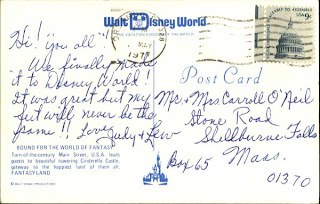 Walt Disney World
THE VACATION KINGDOM OF THE WORLD
MAY
197
USA 9c
Hi! "you all"
We finally made
it to Disney World!
It was great but my
feet will never be the
same!! Love,
Judy & Lew
BOUND FOR THE WORLD OF FANTASY
Turn-of-the-century Main Street, U.S.A. leads
guests to beautiful towering Cinderella Castle,
gateway to the happiest land of them all,
FANTASYLAND
© WALT DISNEY PRODUCTIONS
Post Card
Mr. & Mrs Carroll O'Neil
Stone Road
Shellburne Falls
Box 65 Mass.
01370